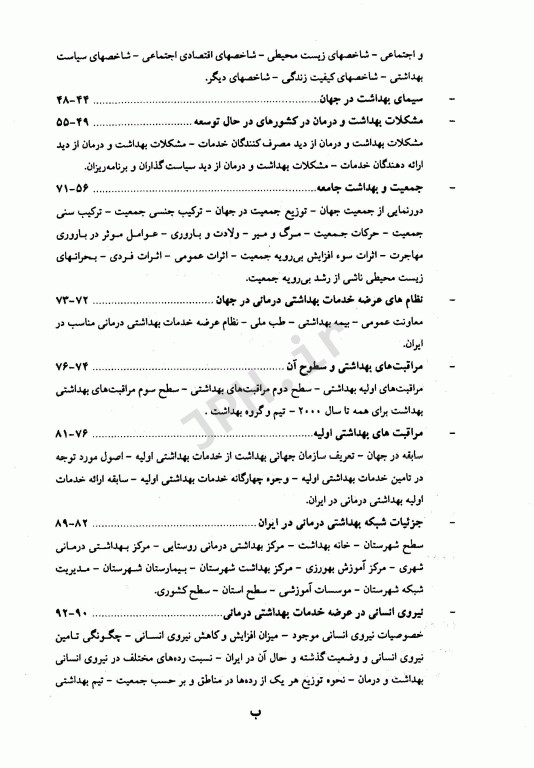 و اجتماعی - شاخصهای زیست محیطی - شاخصهای اقتصادی اجتماعی - شاخصهای سیاست
بهداشتی - شاخصهای کیفیت زندگی - شاخصهای دیگر.
- سیمای بهداشت در جهان ........ ۴۸-۴۴
- مشکلات بهداشت و درمان در کشورهای در حال توسعه ........ ۵۵-۴۹
مشکلات بهداشت و درمان از دید مصرف کنندگان خدمات - مشکلات بهداشت و درمان از دید
ارائه دهندگان خدمات - مشکلات بهداشت و درمان از دید سیاست گذاران و برنامه‌ریزان.
- جمعیت و بهداشت جامعه ........ ۷۱-۵۶
دورنمایی از جمعیت جهان - توزیع جمعیت در جهان - ترکیب جنسی جمعیت - ترکیب سنی
جمعیت - حرکات جمعیت - مرگ و میر - ولادت و باروری - عوامل موثر در باروری
مهاجرت - اثرات سوء افزایش بی‌رویه جمعیت - اثرات عمومی - اثرات فردی - بحرانهای
زیست محیطی ناشی از رشد بی‌رویه جمعیت.
- نظام های عرضه خدمات بهداشتی درمانی در جهان ........ ۷۳-۷۲
معاونت عمومی - بیمه بهداشتی - طب ملی - نظام عرضه خدمات بهداشتی درمانی مناسب در
ایران.
- مراقبت‌های بهداشتی و سطوح آن ........ ۷۶-۷۴
مراقبت‌های اولیه بهداشتی - سطح دوم مراقبت‌های بهداشتی - سطح سوم مراقبت‌های بهداشتی
بهداشت برای همه تا سال ۲۰۰۰ - تیم و گروه بهداشت .
- مراقبت های بهداشتی اولیه ........ ۸۱-۷۶
سابقه در جهان - تعریف سازمان جهانی بهداشت از خدمات بهداشتی اولیه - اصول مورد توجه
در تامین خدمات بهداشتی اولیه - وجوه چهارگانه خدمات بهداشتی اولیه - سابقه ارائه خدمات
اولیه بهداشتی درمانی در ایران.
- جزئیات شبکه بهداشتی درمانی در ایران ........ ۸۹-۸۲
سطح شهرستان - خانه بهداشت - مرکز بهداشتی درمانی روستایی - مرکز بهداشتی درمانی
شهری - مرکز آموزش بهورزی - مرکز بهداشت شهرستان - بیمارستان شهرستان - مدیریت
شبکه شهرستان - موسسات آموزشی - سطح استان - سطح کشوری.
- نیروی انسانی در عرضه خدمات بهداشتی درمانی ........ ۹۲-۹۰
خصوصیات نیروی انسانی موجود - میزان افزایش و کاهش نیروی انسانی - چگونگی تامین
نیروی انسانی و وضعیت گذشته و حال آن در ایران - نسبت رده‌های مختلف در نیروی انسانی
بهداشت و درمان - نحوه توزیع هر یک از رده‌ها در مناطق و بر حسب جمعیت - تیم بهداشتی
ب
JPH.ir